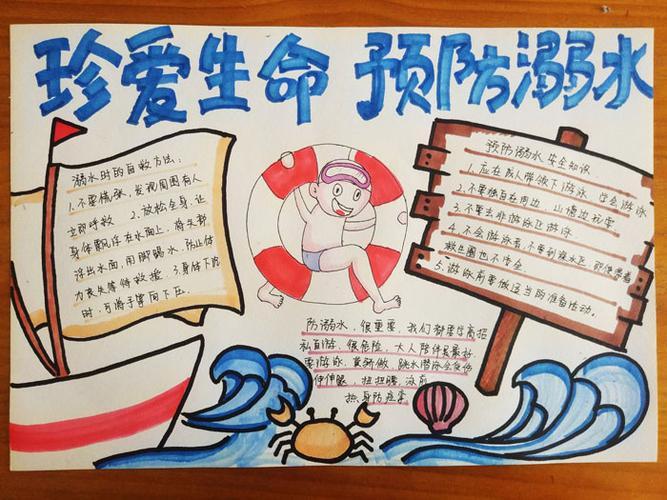 珍爱生命 预防溺水
溺水时的自救方法:
1.不要慌张,发现周围有人
立即呼救 2.放松全身,让
身体飘浮在水面上,将头部
浮出水面,用脚踢水,防止体
力丧失等待救援 3.身体下沉
时,可将手掌向下压。
预防溺水安全知识
1.应在成人带领下游泳 学会游泳
2.不要独自在河边 山塘边玩耍
3.不要去非游泳区游泳
4.不会游泳者,不要到深水区,即使带着
救生圈也不安全.
5.游泳前要做适当的准备活动。
防溺水,很重要,我们都要学高招
私自游、很危险,大人陪伴是最好
要游泳,莫骄傲 跳水潜泳会受伤
伸伸腿,扭扭腰,泳前
热身防痉挛